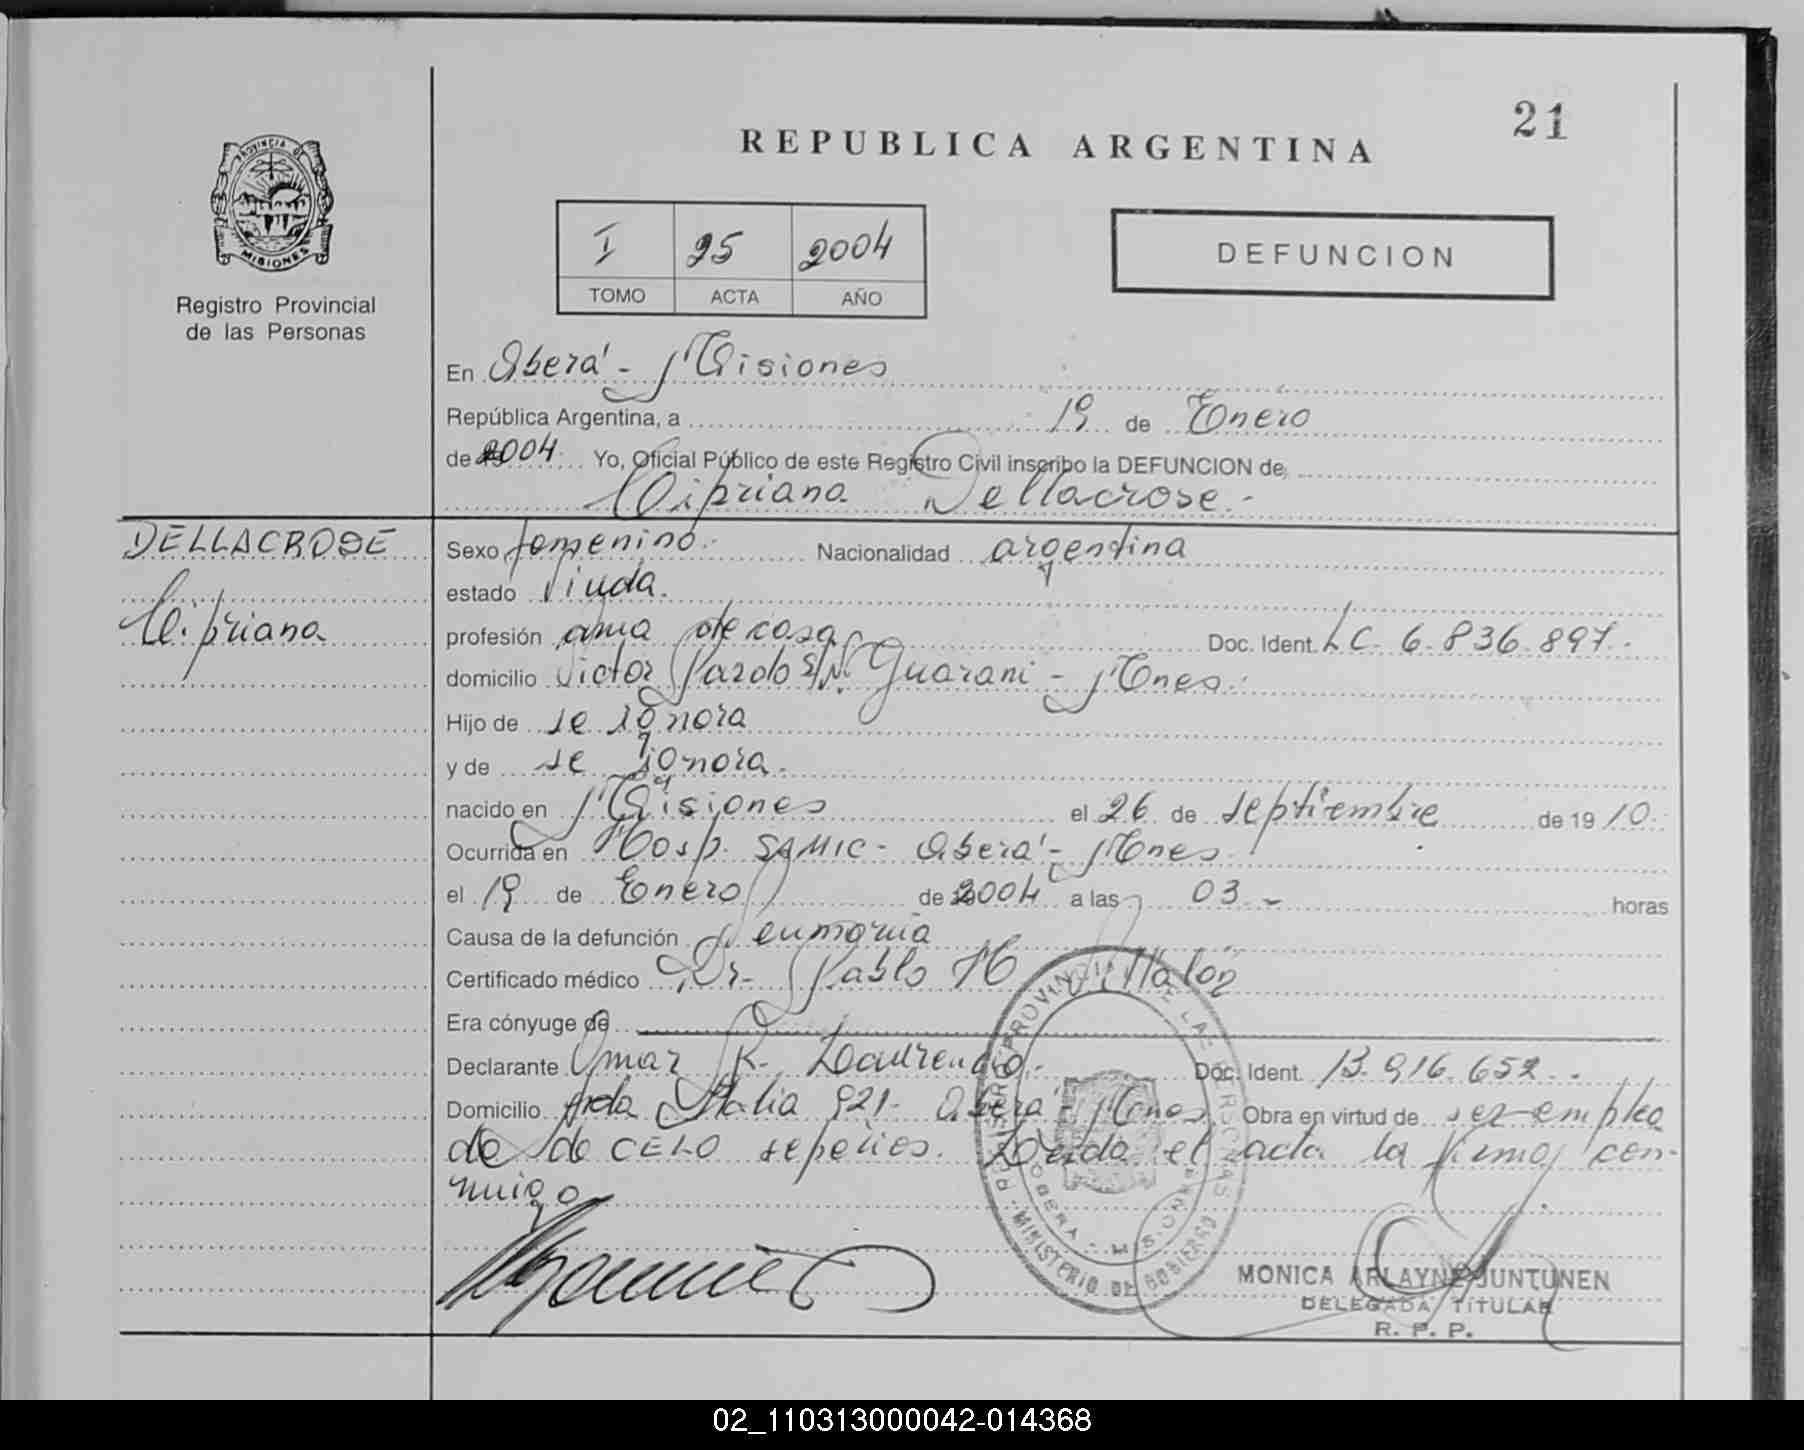 21
REPUBLICA ARGENTINA
PROVINCIA DE
MISIONES
Registro Provincial
de las Personas
I 25 2004
TOMO ACTA AÑO
DEFUNCION
En Oberá - Misiones
República Argentina, a 19 de Enero
de 2004 Yo, Oficial Público de este Registro Civil inscribo la DEFUNCION de
Cipriana Dellacrose.-
DELLACROSE
Cipriana
Sexo femenino. Nacionalidad argentina
estado Viuda.
profesión ama de casa Doc. Ident. LC. 6.836.897.-
domicilio Victor Pardo S/Nº Guarani - Mnes.
Hijo de se ignora
y de se ignora.
nacido en Misiones el 26 de septiembre de 1910.
Ocurrida en Hosp. SAMIC - Oberá - Mnes.
el 19 de Enero de 2004 a las 03.- horas
Causa de la defunción Neumonia
Certificado médico Dr. Pablo H
Era cónyuge de
Declarante Omar R. Doc. Ident. 13.916.652.-
Domicilio Avda Italia 921- Oberá - Mnes. Obra en virtud de ser emplea
do de CELO sepelios. Leida el acta la firma con-
migo
REGISTRO PROVINCIAL DE LAS PERSONAS
OBERA - MISIONES
MINISTERIO DE GOBIERNO
MONICA ARLAYNE JUNTUNEN
DELEGADA TITULAR
R. P. P.
02_110313000042-014368